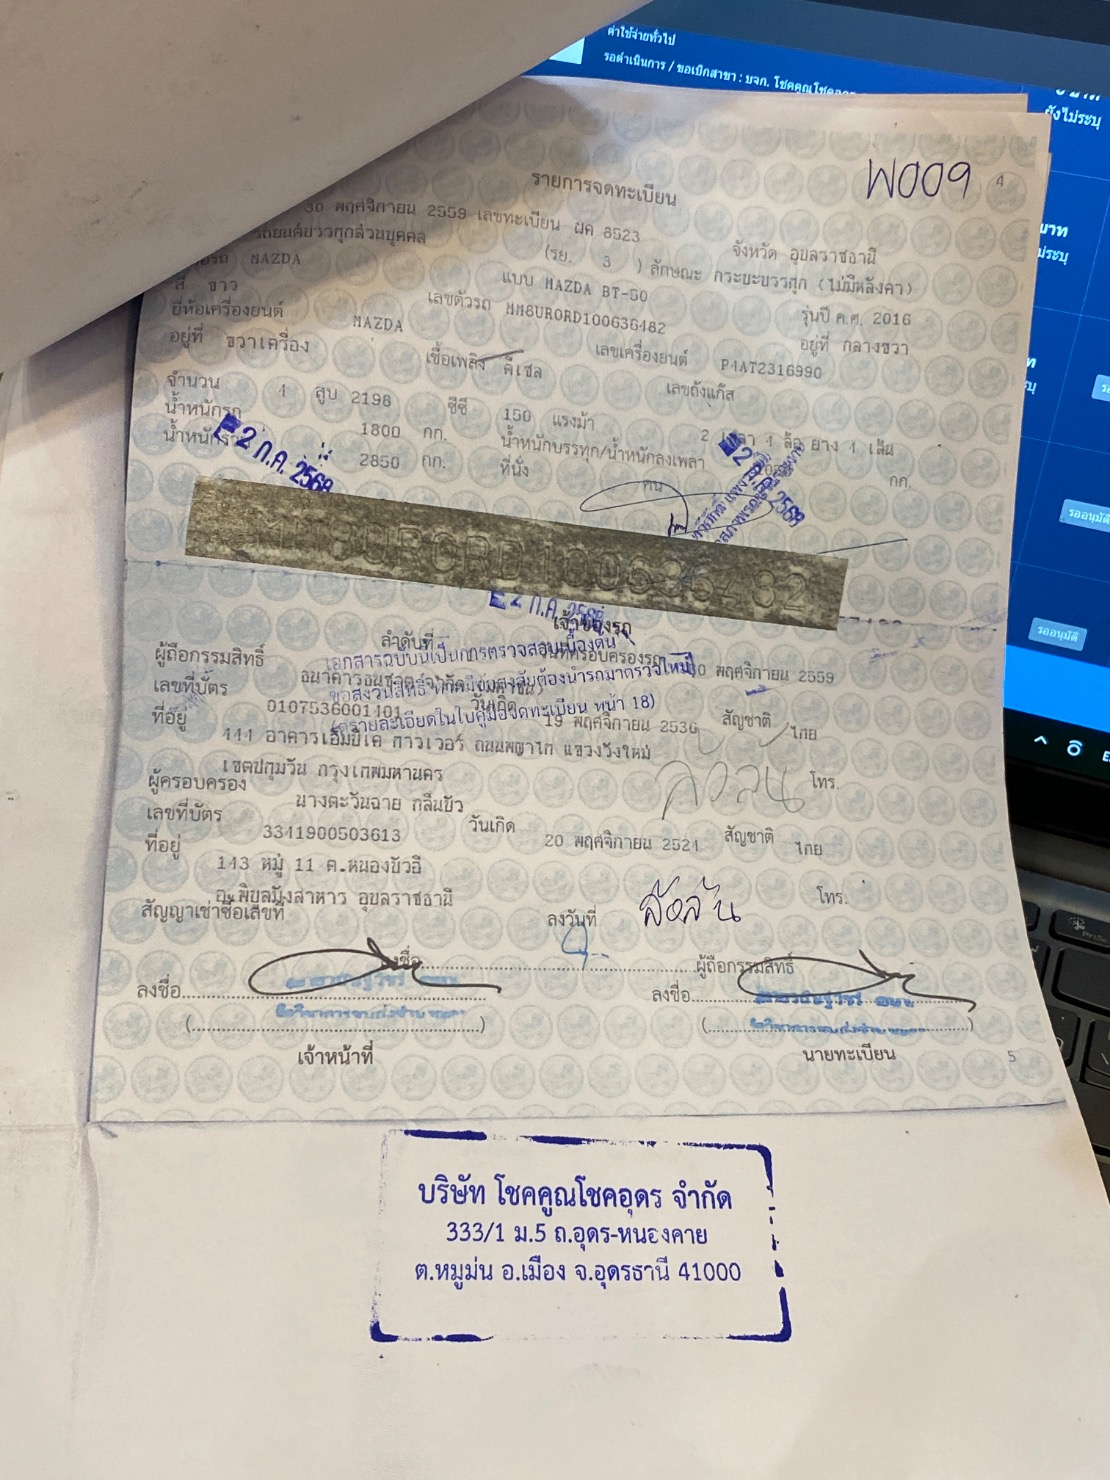 ค่าใช้จ่ายทั่วไป
รอดำเนินการ / ขอเบิกสาขา : บจก. โชคคูณโชคอุดร
ยังไม่ระบุ
W009
4
รายการจดทะเบียน
30 พฤศจิกายน 2559 เลขทะเบียน ผค 8523 จังหวัด อุบลราชธานี
รถยนต์บรรทุกส่วนบุคคล (รย. 3 ) ลักษณะ กระบะบรรทุก (ไม่มีหลังคา)
MAZDA แบบ MAZDA BT-50 รุ่นปี ค.ศ. 2016
สี ขาว เลขตัวรถ MM8UR0RD100636482 อยู่ที่ กลางขวา
ยี่ห้อเครื่องยนต์ MAZDA เลขเครื่องยนต์ P4AT2316990
อยู่ที่ ขวาเครื่อง เชื้อเพลิง ดีเซล เลขถังแก๊ส
จำนวน 4 สูบ 2198 ซีซี 150 แรงม้า 2 เพลา 4 ล้อ ยาง 4 เส้น
น้ำหนักรถ 1800 กก. น้ำหนักบรรทุก/น้ำหนักลงเพลา กก.
น้ำหนักรวม 2850 กก. ที่นั่ง คน
2 ก.ค. 2568
2 ก.ค. 2568
2 ก.ค. 2568
เจ้าของรถ
ลำดับที่ วันที่ครอบครองรถ 30 พฤศจิกายน 2559
เอกสารฉบับนี้เป็นการตรวจสอบเบื้องต้น
ผู้ถือกรรมสิทธิ์ ธนาคารธนชาต จำกัด (มหาชน)
ขอสงวนสิทธิ์ หากมีข้อสงสัยต้องนำรถมาตรวจใหม่
(ดูรายละเอียดในใบคู่มือจดทะเบียน หน้า 18)
เลขที่บัตร 0107536001401 วันเกิด 19 พฤศจิกายน 2536 สัญชาติ ไทย
ที่อยู่ 444 อาคารเอ็มบีเค ทาวเวอร์ ถนนพญาไท แขวงวังใหม่
เขตปทุมวัน กรุงเทพมหานคร โทร.
ผู้ครอบครอง นางตะวันฉาย กลีบบัว
เลขที่บัตร 3341900503613 วันเกิด 20 พฤศจิกายน 2521 สัญชาติ ไทย
ที่อยู่ 143 หมู่ 11 ต.หนองบัวฮี
อ.พิบูลมังสาหาร อุบลราชธานี โทร.
สัญญาเช่าซื้อเลขที่ ลงวันที่
ลงชื่อ ผู้ถือกรรมสิทธิ์
ลงชื่อ ลงชื่อ
เจ้าหน้าที่ นายทะเบียน
5
บริษัท โชคคูณโชคอุดร จำกัด
333/1 ม.5 ถ.อุดร-หนองคาย
ต.หมูม่น อ.เมือง จ.อุดรธานี 41000
รออนุมัติ
รออนุมัติ